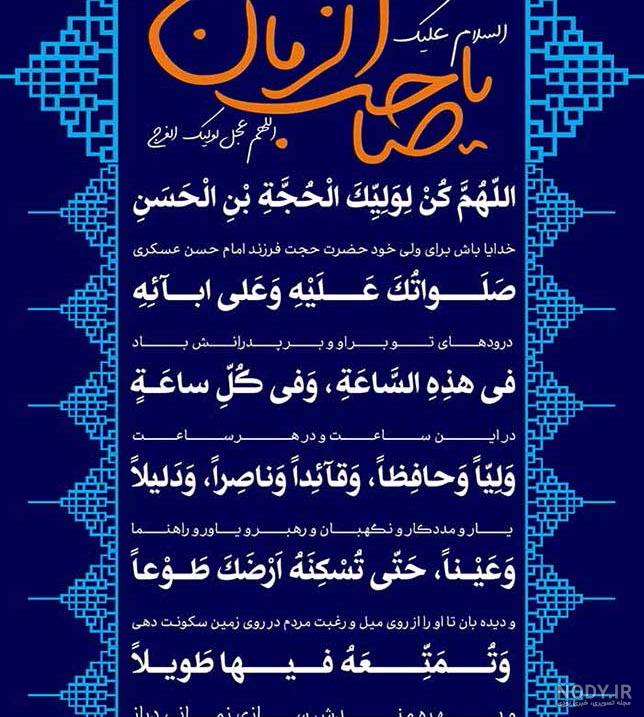 السلام علیک
یا صاحب الزمان
اللهم عجل لولیک الفرج
اللّهُمَّ كُنْ لِوَلِيِّكَ الْحُجَّةِ بْنِ الْحَسَنِ
خدایا باش برای ولی خود حضرت حجت فرزند امام حسن عسکری
صَلَـــواتُكَ عَلَـــيْهِ وَعَلی ابـــآئِهِ
درودهـــای تـــو بـــر او و بـــر پـــدرانـــش بـــاد
فی هذِهِ السَّاعَةِ ، وَفی كُلِّ ساعَـةٍ
در ایـــن ســـاعـــت و در هـــر ســـاعـــت
وَلِيّاً وَحافِظاً، وَقآئِداً وَناصِراً، وَدَليلاً
یـــار و مددکار و نگهبـــان و رهبـــر و یـــاور و راهنـــما
وَعَيْـناً، حَتّی تُسْكِنَهُ اَرْضَكَ طَـوْعاً
و دیده بان تا او را از روی میل و رغبت مردم در روی زمین سکونت دهی
وَتُـــمَتِّـــعَهُ فيـــها طَويـــلاً
NODY.IR
مجله تصویری، خبری نودی